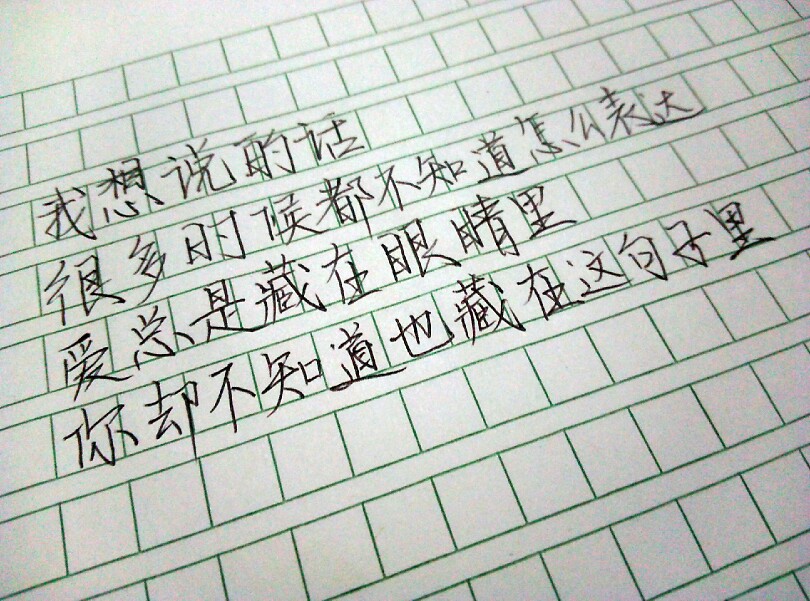 我想说的话
很多时候都不知道怎么表达
爱总是藏在眼睛里
你却不知道也藏在这句子里